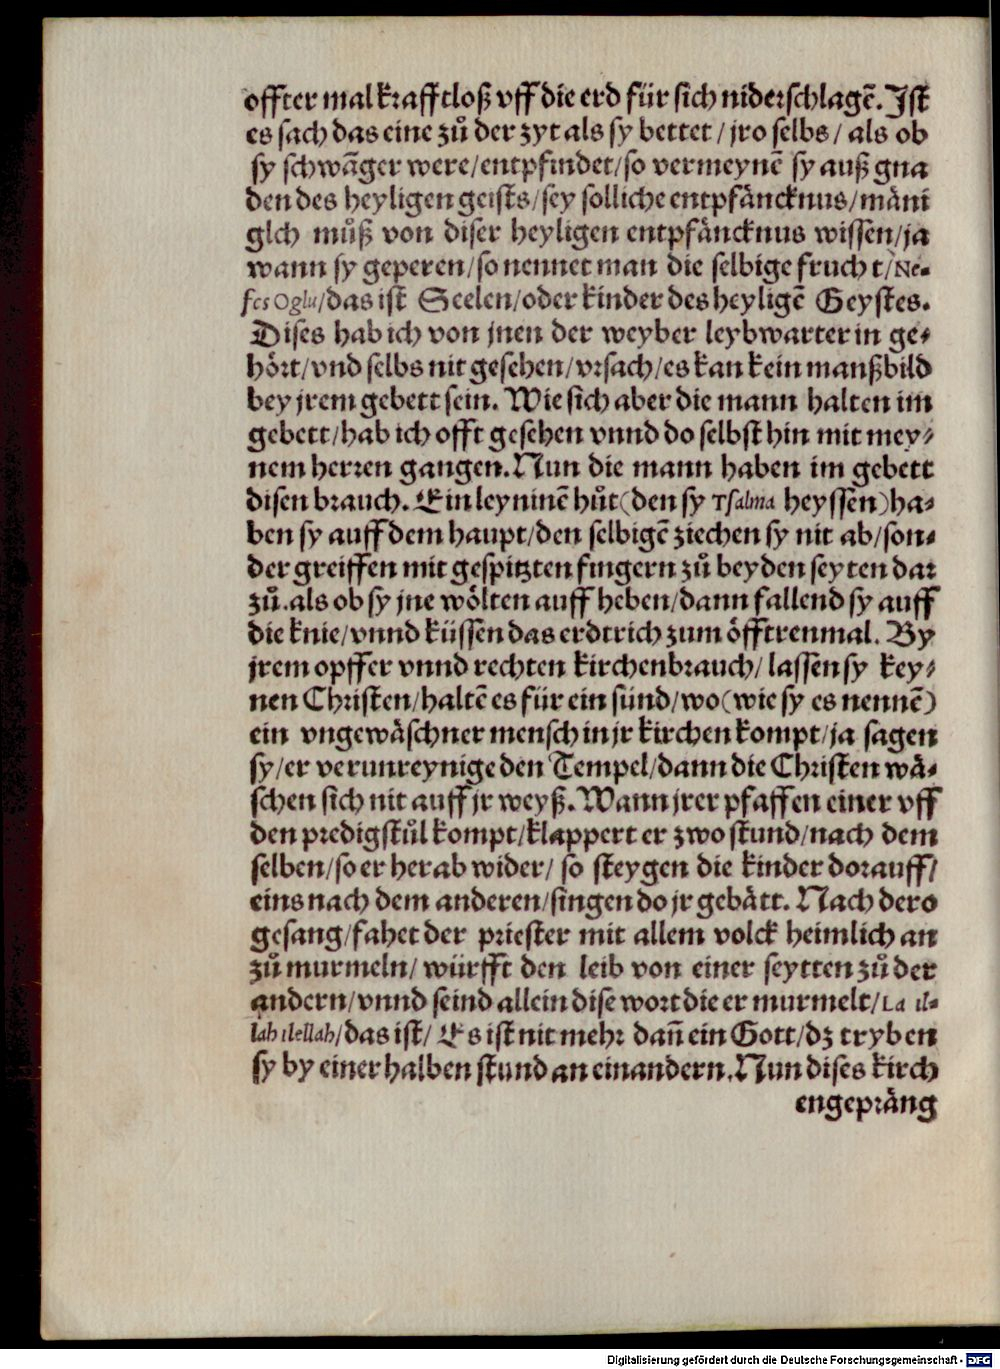 offter mal krafftloß vff die erd für sich niderschlagẽ. Jst
es sach das eine zů der zyt als sy bettet / jro selbs / als ob
sy schwãger were / entpfindet / so vermeynẽ sy auß gna
den des heyligen geists / sey solliche entpfäncknus / mäni
glch můß von diser heyligen entpfäncknus wissen / ja
wann sy geperen / so nennet man die selbige frucht / Ne⸗
fes Oglu / das ist Seelen / oder kinder des heyligẽ Geystes.
Dises hab ich von jnen der weyber leybwarterin ge⸗
hört / vnd selbs nit gesehen / vrsach / es kan kein manßbild
bey jrem gebett sein. Wie sich aber die mann halten im
gebett / hab ich offt gesehen vnnd do selbst hin mit mey⸗
nem herren gangen. Nun die mann haben im gebett
disen brauch. Ein leyninẽ hůt (den sy Tsalma heyssen) ha⸗
ben sy auff dem haupt / den selbigẽ ziechen sy nit ab / son⸗
der greiffen mit gespitzten fingern zů beyden seyten dar
zů. als ob sy jne wölten auff heben / dann fallend sy auff
die knie / vnnd küssen das erdtrich zum öfftrenmal. By
jrem opffer vnnd rechten kirchenbrauch / lassen sy key⸗
nen Christen / haltẽ es für ein sünd / wo (wie sy es nennẽ)
ein vngewäschner mensch in jr kirchen kompt / ja sagen
sy / er verunreynige den Tempel / dann die Christen wä⸗
schen sich nit auff jr weyß. Wann jrer pfaffen einer vff
den predigstůl kompt / klappert er zwo stund / nach dem
selben / so er herab wider / so steygen die kinder dorauff /
eins nach dem anderen / singen do jr gebätt. Nach dero
gesang / fahet der priester mit allem volck heimlich an
zů murmeln / würfft den leib von einer seytten zů der
andern / vnnd seind allein dise wort die er murmelt / La il⸗
lah illellah / das ist / Es ist nit mehr dañ ein Gott / dz tryben
sy by einer halben stund an einandern. Nun dises kirch
engepräng
Digitalisierung gefördert durch die Deutsche Forschungsgemeinschaft - DFG